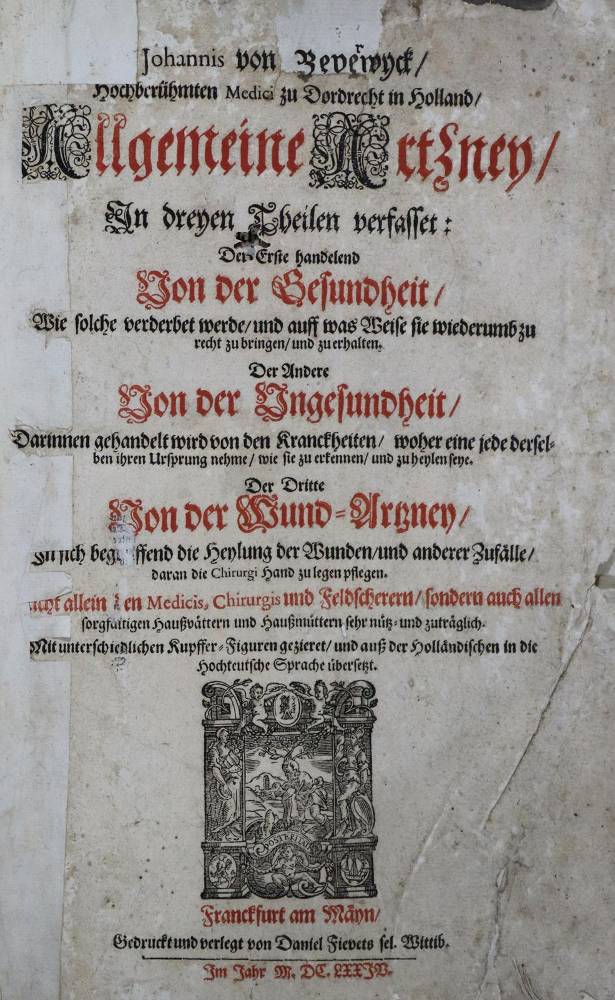 Johannis von Beverwyck/
Hochberühmten Medici zu Dordrecht in Holland/
Allgemeine Artzney/
In dreyen Theilen verfasset:
Der Erste handelend
Von der Gesundheit/
Wie solche verderbet werde/ und auff was Weise sie wiederumb zu
recht zu bringen/ und zu erhalten.
Der Andere
Von der Ungesundheit/
Darinnen gehandelt wird von den Kranckheiten/ woher eine jede dersel-
ben ihren Ursprung nehme/ wie sie zu erkennen/ und zu heylen seye.
Der Dritte
Von der Wund-Artzney/
In sich beg ffend die Heylung der Wunden/ und anderer Zufälle/
daran die Chirurgi Hand zu legen pflegen.
allein en Medicis, Chirurgis und Feldscherern/ sondern auch allen
sorgfältigen Haußvättern und Haußmüttern sehr nütz- und zuträglich.
Mit unterschiedlichen Kupffer-Figuren gezieret/ und auß der Holländischen in die
Hochteutsche Sprache übersetzt.
POSTERITATI
Franckfurt am Mäyn/
Gedruckt und verlegt von Daniel Fievets sel. Wittib.
Im Jahr M. DC. LXXIV.